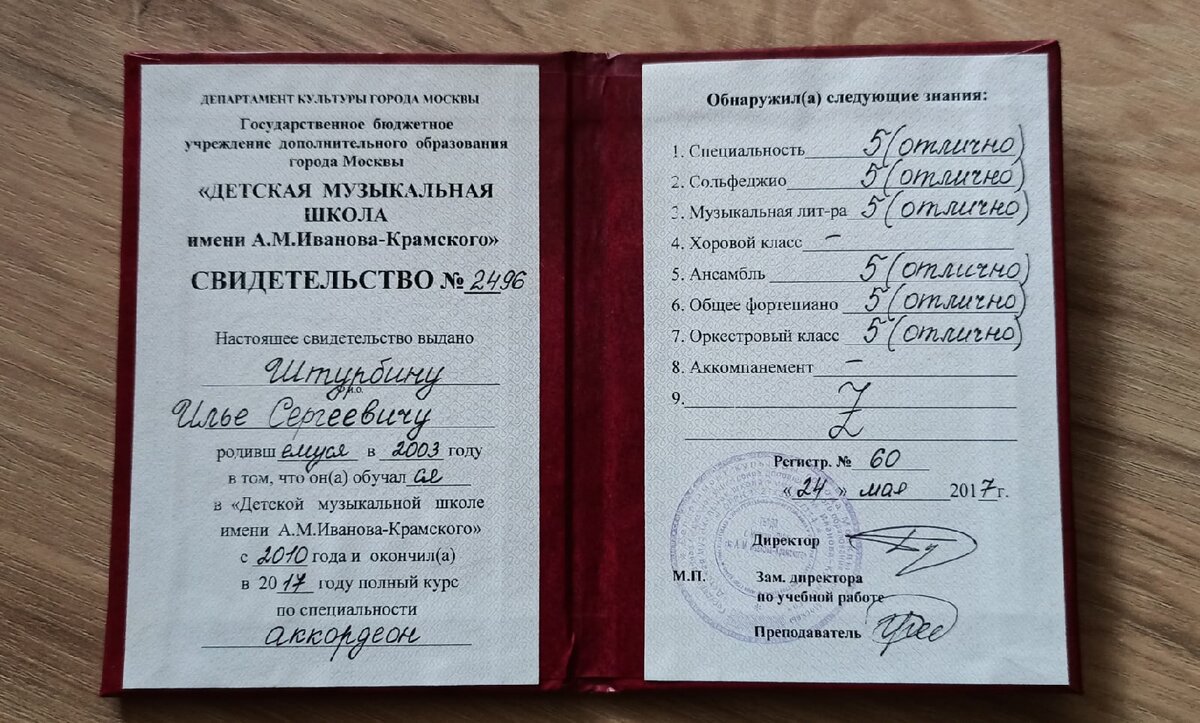 ДЕПАРТАМЕНТ КУЛЬТУРЫ ГОРОДА МОСКВЫ
Государственное бюджетное
учреждение дополнительного образования
города Москвы
«ДЕТСКАЯ МУЗЫКАЛЬНАЯ
ШКОЛА
имени А.М.Иванова-Крамского»
СВИДЕТЕЛЬСТВО № 2496
Настоящее свидетельство выдано
Штурбину
Ф.И.О.
Илье Сергеевичу
родивш емуся в 2003 году
в том, что он(а) обучал ся
в «Детской музыкальной школе
имени А.М.Иванова-Крамского»
с 2010 года и окончил(а)
в 2017 году полный курс
по специальности
аккордеон
Обнаружил(а) следующие знания:
1. Специальность 5 (отлично)
2. Сольфеджио 5 (отлично)
3. Музыкальная лит-ра 5 (отлично)
4. Хоровой класс –
5. Ансамбль 5 (отлично)
6. Общее фортепиано 5 (отлично)
7. Оркестровый класс 5 (отлично)
8. Аккомпанемент –
9. Z
Регистр. № 60
«24» мая 2017г.
Директор
М.П.
Зам. директора
по учебной работе
Преподаватель